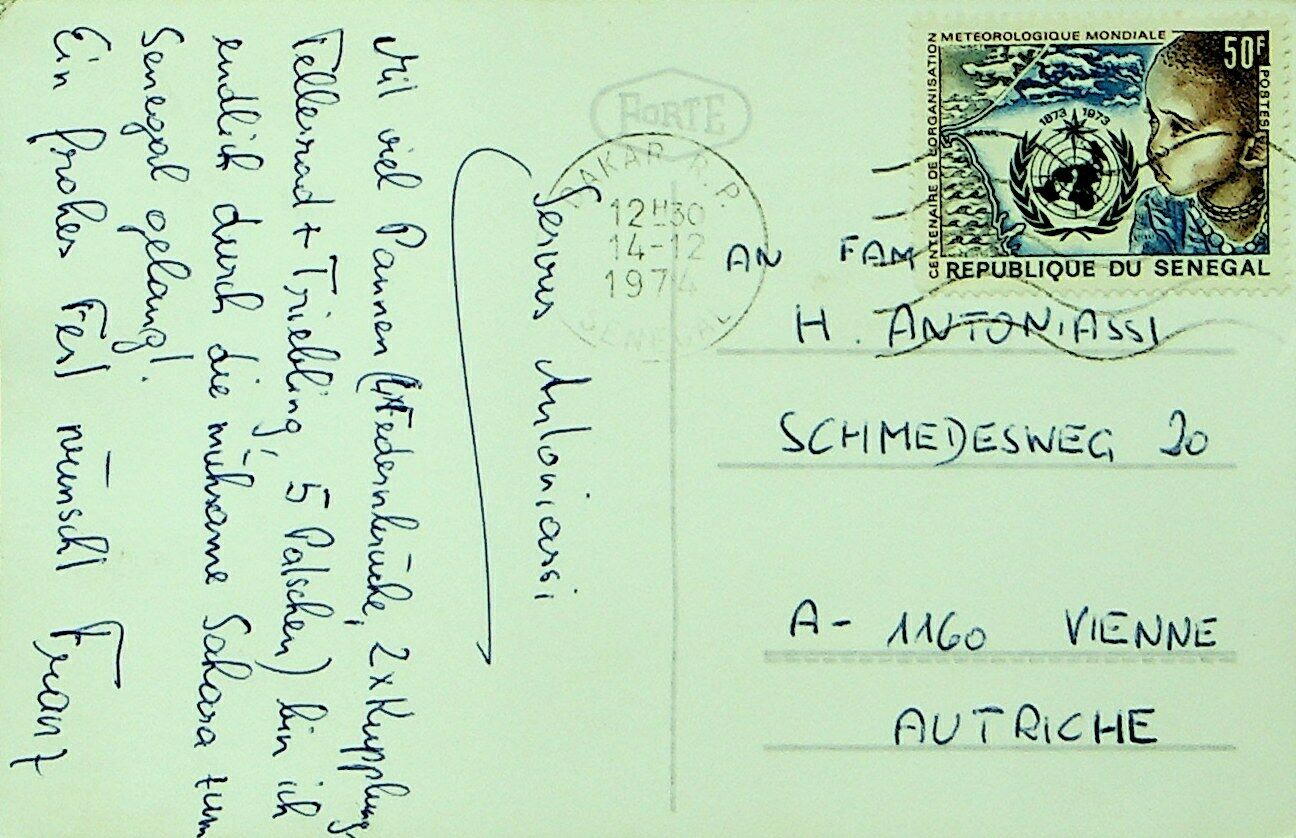 Servus Antoniassi
Mit viel Pannen (4x Federnbrüche, 2x Kupplung,
Tellerrad + Triebling, 5 Patschen) bin ich
endlich durch die mühsame Sahara zum
Senegal gelangt.
Ein frohes Fest wünscht Franz
FORTE
DAKAR R.P.
12H30
14-12
1974
SENEGAL
CENTENAIRE DE L'ORGANISATION METEOROLOGIQUE MONDIALE
50F
POSTES
1873 1973
REPUBLIQUE DU SENEGAL
AN FAM
H. ANTONIASSI
SCHMEDESWEG 20
A- 1160 VIENNE
AUTRICHE